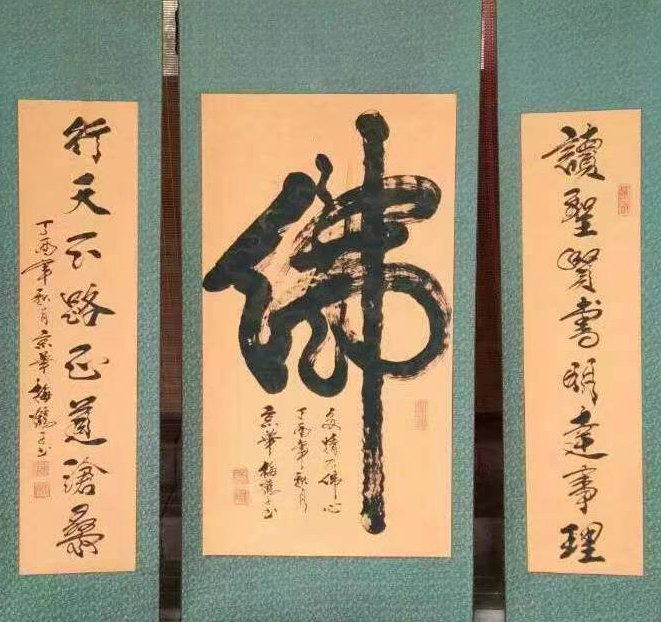 讀聖賢書明達事理
佛
多情乃佛心
丁酉年秋月
京華梅鶴书
行天下路正道滄桑
丁酉年秋月京華梅鶴书